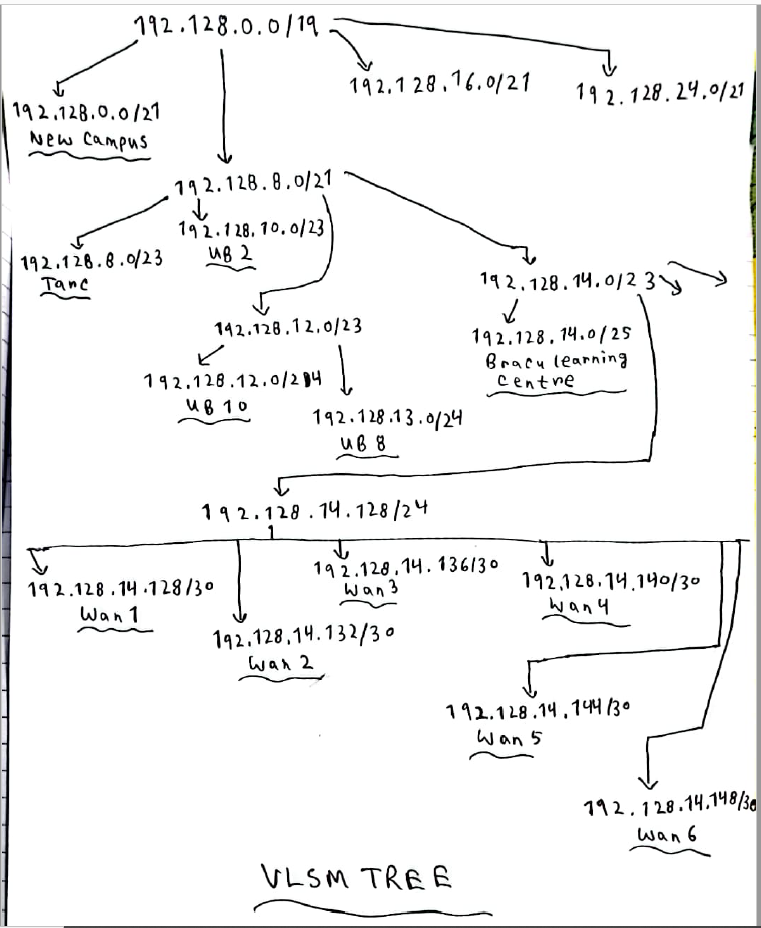 192.128.0.0/19
192.128.0.0/21
New Campus
192.128.16.0/21
192.128.24.0/21
192.128.8.0/21
192.128.8.0/23
Tarc
192.128.10.0/23
UB 2
192.128.12.0/23
192.128.12.0/24
UB 10
192.128.13.0/24
UB 8
192.128.14.0/23
192.128.14.0/25
Bracu learning
Centre
192.128.14.128/24
192.128.14.128/30
Wan 1
192.128.14.132/30
Wan 2
192.128.14.136/30
Wan 3
192.128.14.140/30
Wan 4
192.128.14.144/30
Wan 5
192.128.14.148/30
Wan 6
VLSM TREE